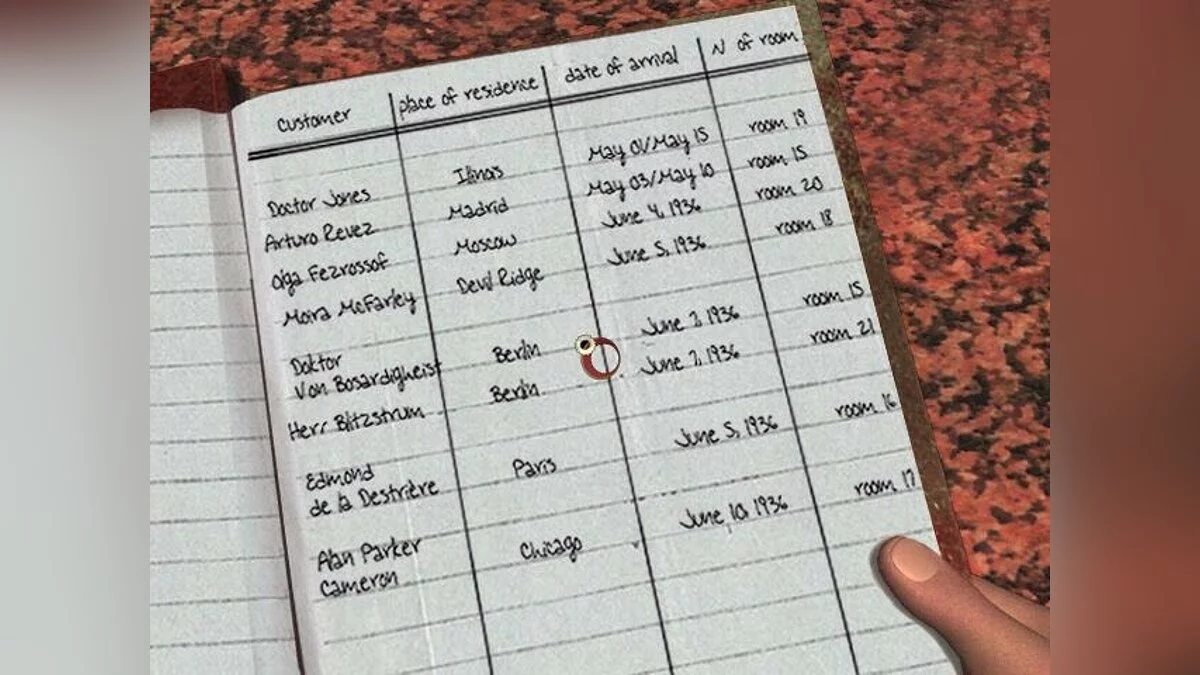 customer place of residence date of arrival N of room
Doctor Jones Illinois May 01/May 15 room 19
Arturo Revez Madrid May 03/May 10 room 15
Olga Fezrossof Moscow June 4, 1936 room 20
Moira McFarley Devil Ridge June 5, 1936 room 18
Doktor
Von Bosardigheist Berlin June 7, 1936 room 15
Herr Blitzstrum Berlin June 7, 1936 room 21
Edmond
de la Destrière Paris June 5, 1936 room 16
Alan Parker
Cameron Chicago June, 10, 1936 room 17